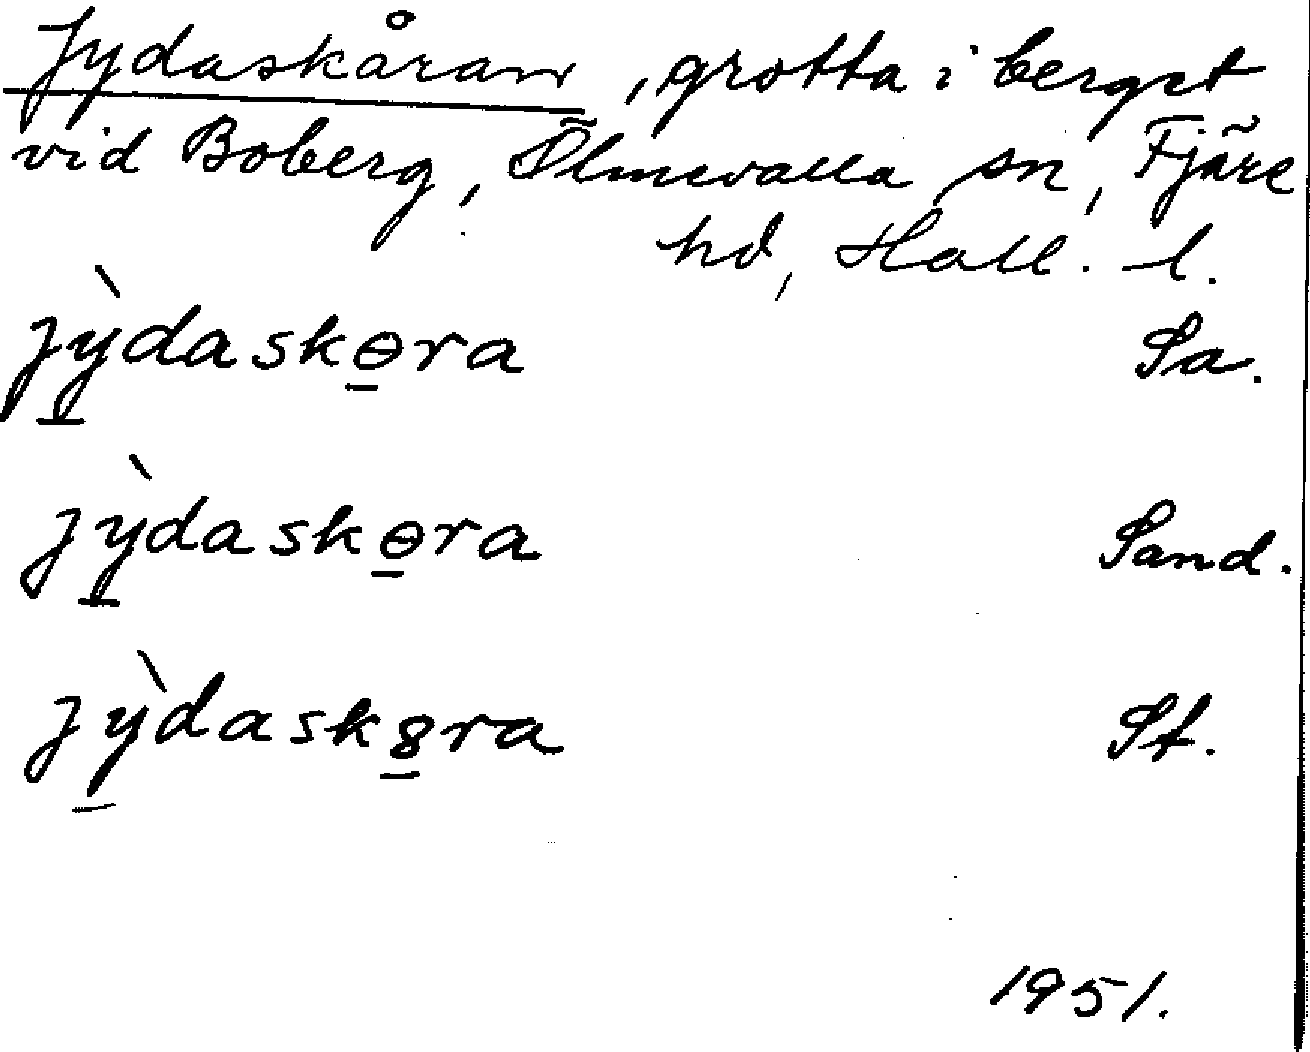 Jydaskåran, grotta i berget
vid Boberg, Ölmevalla sn, Fjäre
hd, Hall. l.
jỳdaskɵra Sa.
jỳdaskɵra Sand.
jỳdask8ra St.
1951.